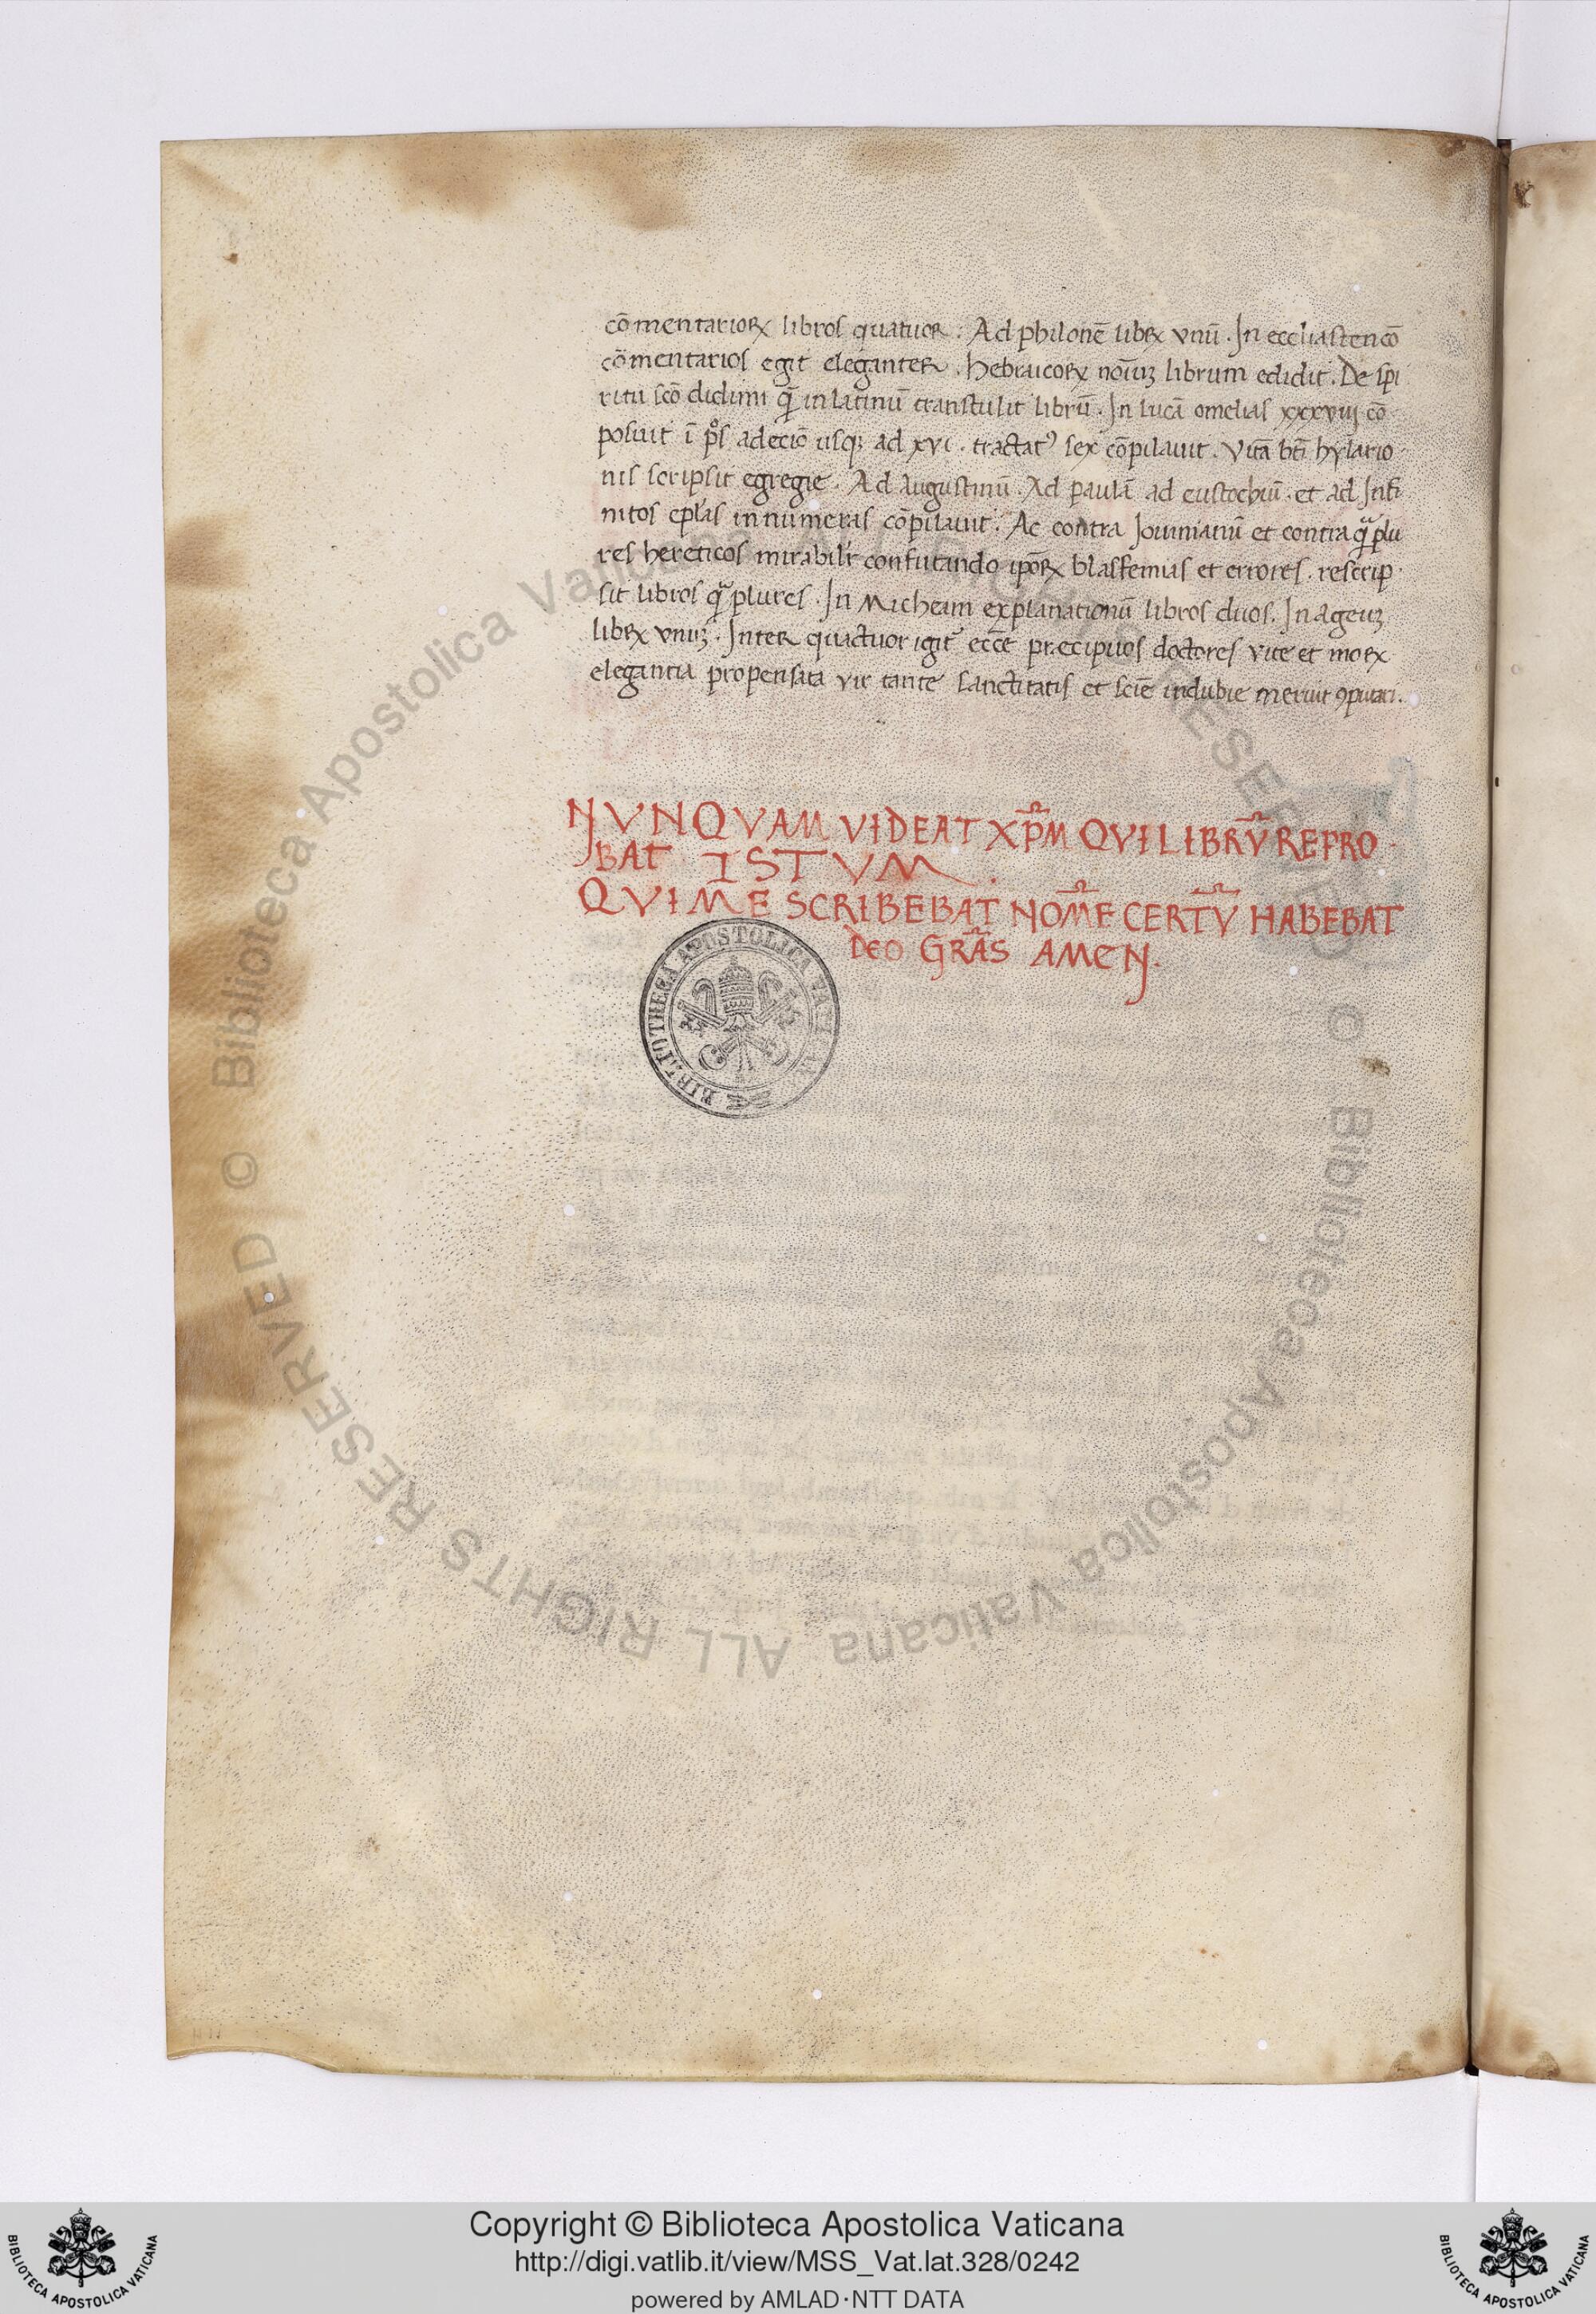 cōmentarioꝝ libros quatuor. Ad philonē librꝝ vnū. In eccliasten cō
cōmentarios egit eleganter. Hebraicoꝝ noīuꝫ librum edidit. De spi
ritu scō didimi quē in latinū transtulit librū. In lucā omelias xxxviiij cō
posuit ī pͦs adecīo usqꝫ ad xvi. tractatꝰ sex cōpilauit. Vitā bti hylario
nis scripsit egregie. Ad augustinū. Ad paulā ad eustochiū. et ad Infi
nitos eplas innumeras cōpilauit. Ac contra Iouinianū et contra quā plu
res hereticos mirabilr confutando ipōꝝ blasfemias et errores. rescrip
sit libros quā plures. In Micheam explanationū libros duos. In ageuꝫ
librꝝ vnuꝫ. Inter quactuor igit ecce præcipuos doctores vite et moꝝ
elegantia propensata vir tante sanctitatis et scie indubie meruit ꝯputari.
NVNQVAM VIDEAT XPM QVI LIBRV̄ REPRO
BAT ISTVM.
QVI ME SCRIBEBAT NOM̄E CERTV̄ HABEBAT
DEO GRĀS AMEN.
BIBLIOTHECA APOSTOLICA VATICANA
© Biblioteca Apostolica Vaticana ALL RIGHTS RESERVED © Biblioteca Apostolica Vaticana ALL RIGHTS RESERVED
Copyright © Biblioteca Apostolica Vaticana
http://digi.vatlib.it/view/MSS_Vat.lat.328/0242
powered by AMLAD·NTT DATA
BIBLIOTECA APOSTOLICA VATICANA
BIBLIOTECA APOSTOLICA VATICANA